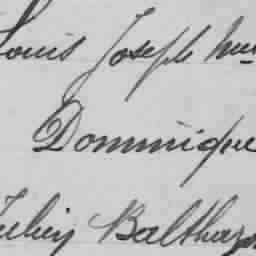 Louis Joseph
Dominique
Julien Balthazar